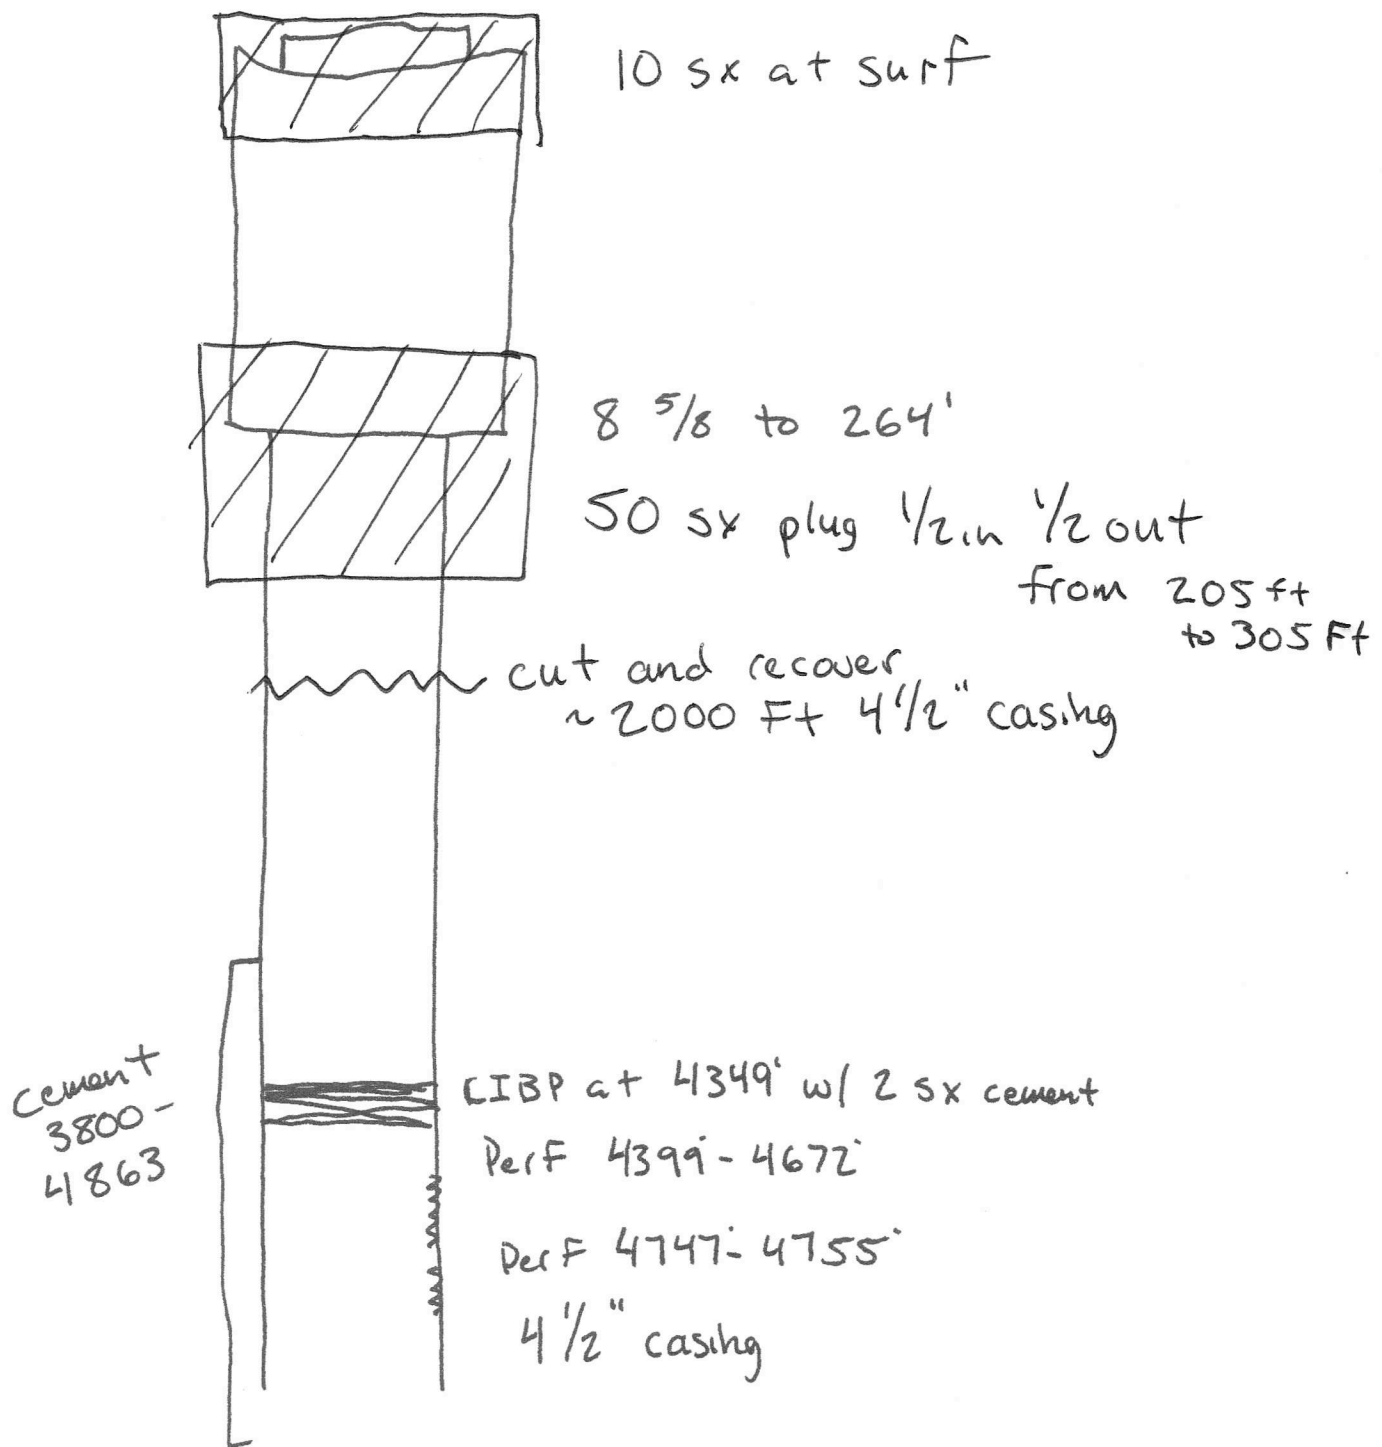 10 sx at surf
8 5/8 to 264'
50 sx plug 1/2 in 1/2 out
from 205 ft
to 305 Ft
cut and recover
~ 2000 Ft 4 1/2" casing
cement
3800-
4863
CIBP at 4349' w/ 2 sx cement
Perf 4399'- 4672'
Perf 4747'- 4755'
4 1/2" casing